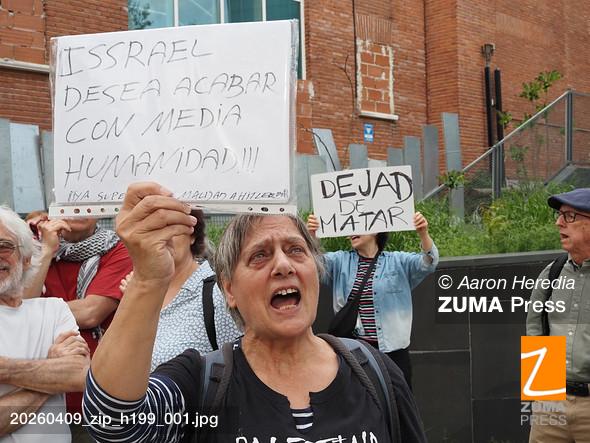 ISSRAEL
DESEA ACABAR
CON MEDIA
HUMANIDAD!!!
¡¡YA SUPE MALDAD A HITLER!!
DEJAD
DE
MATAR
© Aaron Heredia
ZUMA Press
Z
ZUMA
PRESS
20260409_zip_h199_001.jpg
PALESTINA